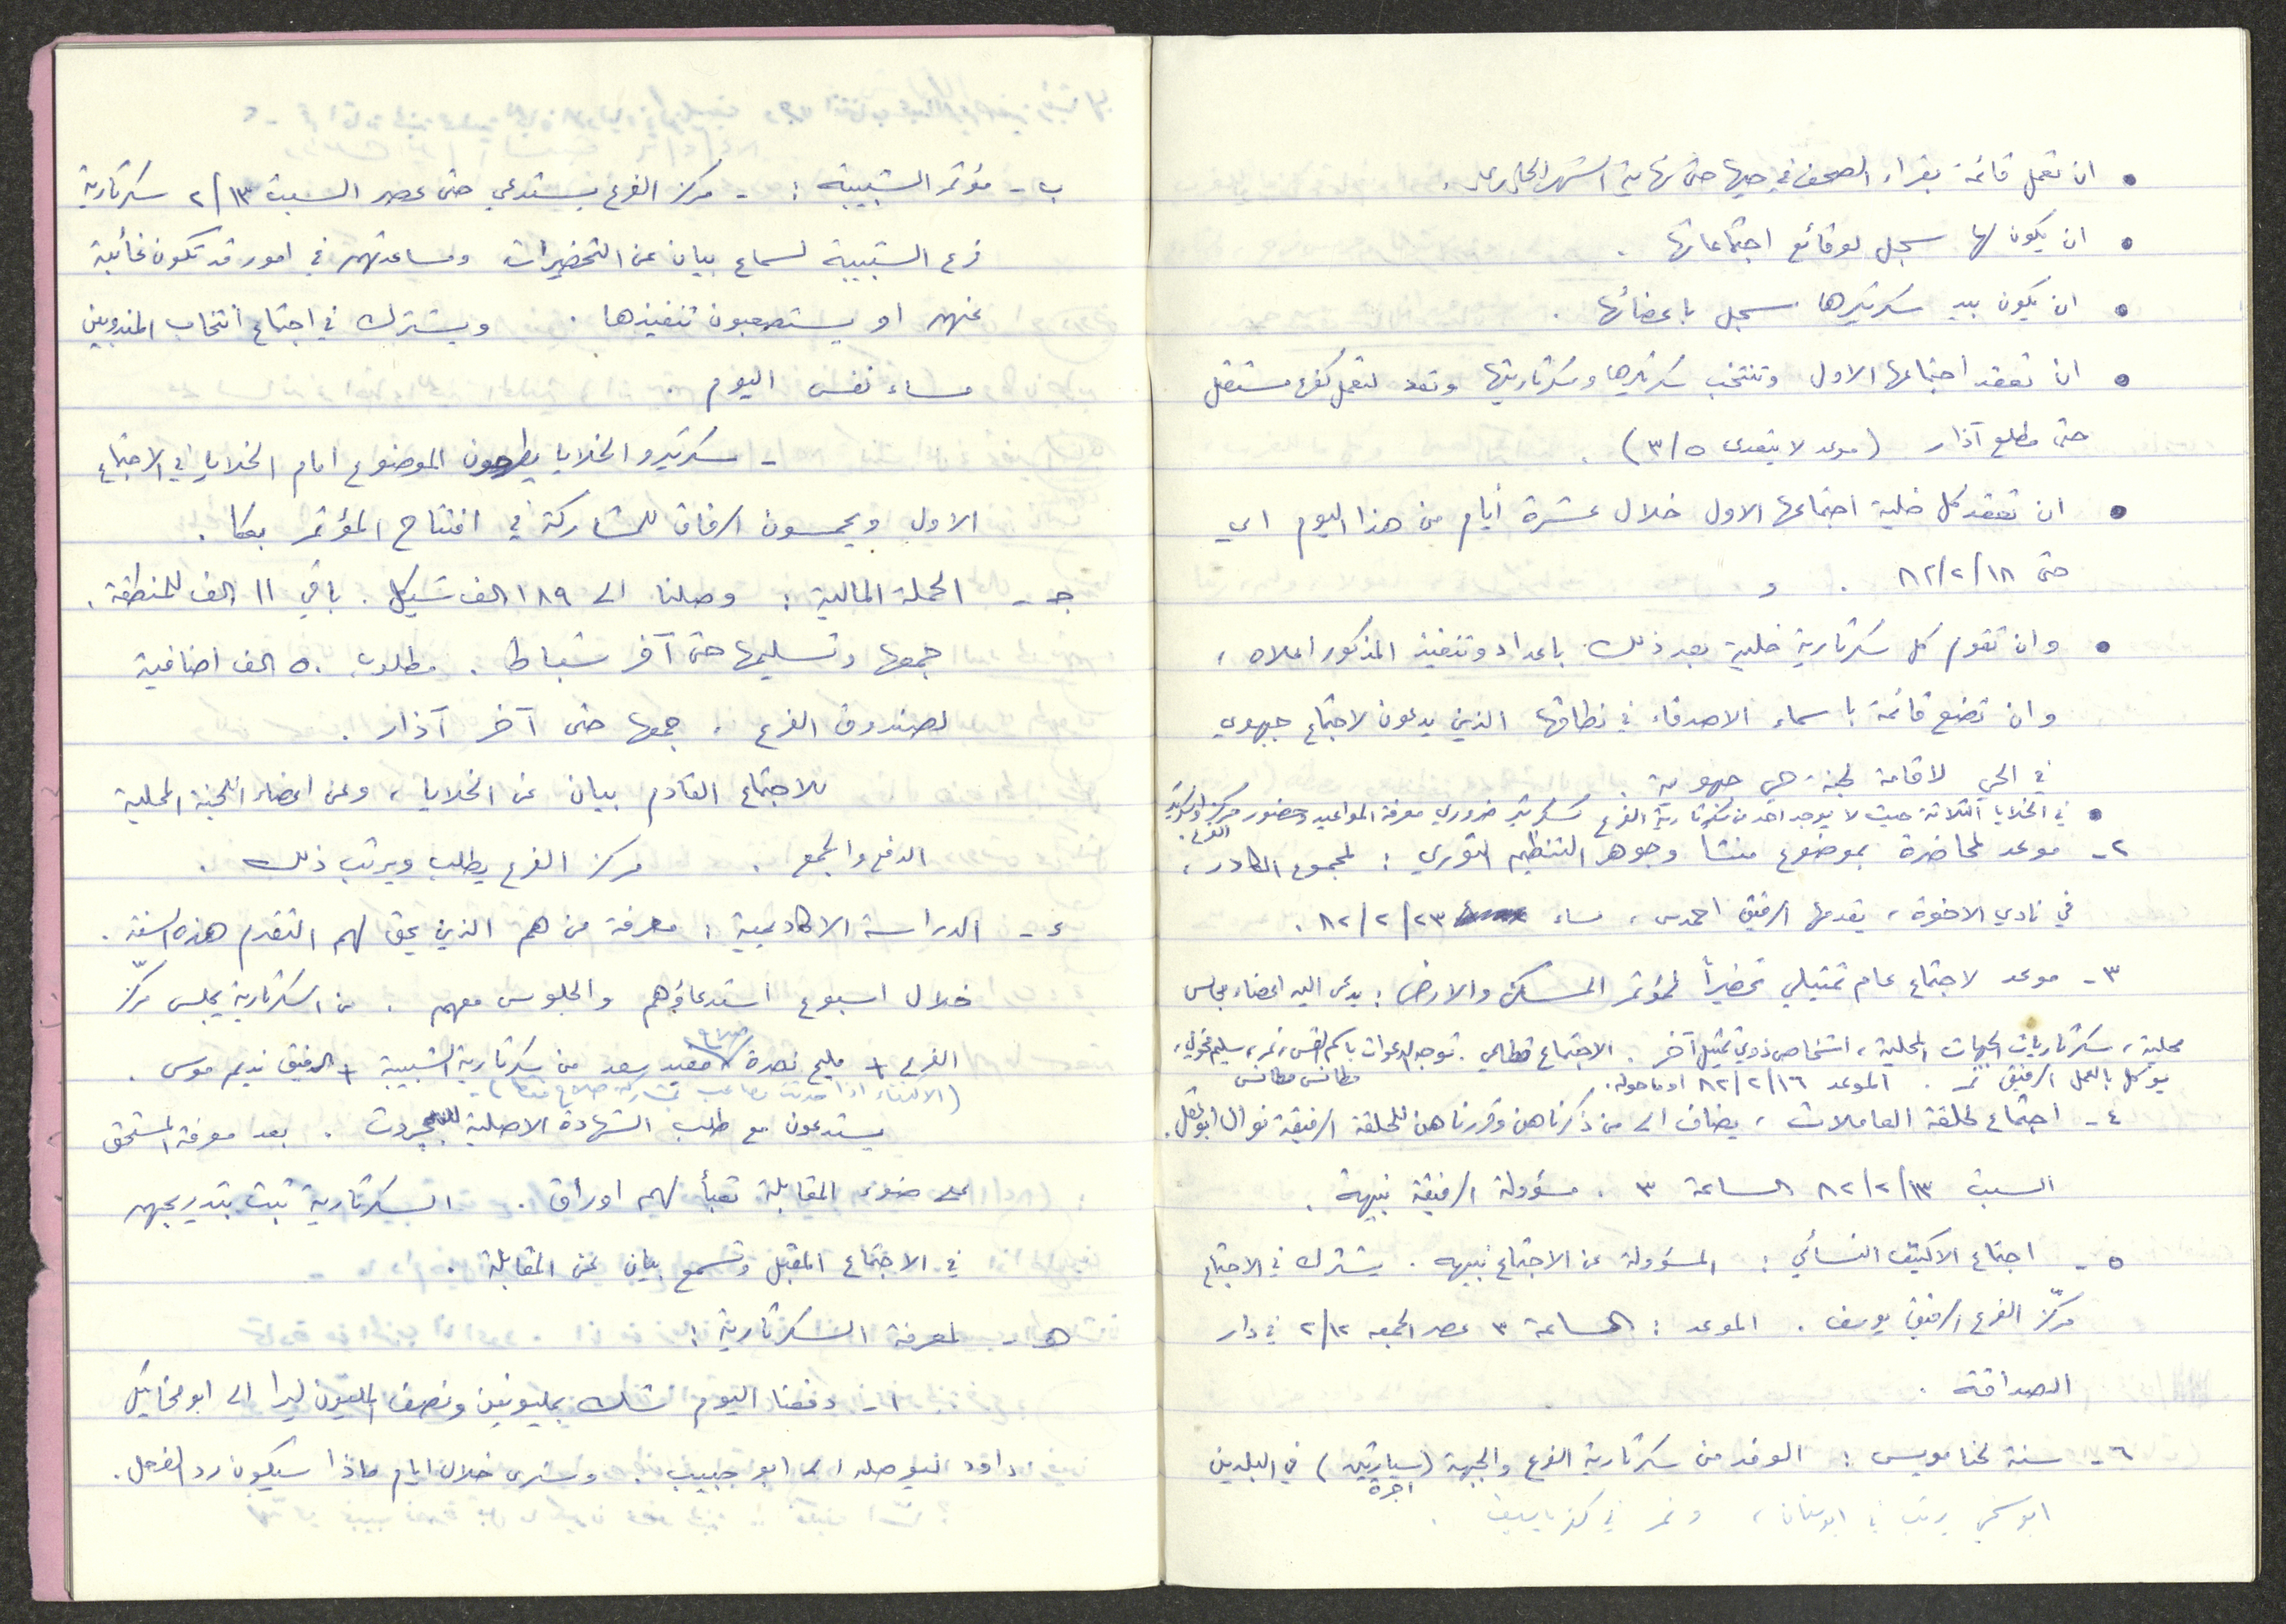 • ان تعمل قائمة بقراء الصحف في حيها حتى نهاية الشهر الجاري
• ان يكون لها سجل لوقائع اجتماعاتها .
• ان يكون بيد سكرتيرها سجل باعضائها .
• ان تعقد اجتماعها الاول وتنتخب سكرتيرها وسكرتاريتها وتعد لتعمل كفرع مستقل
حتى مطلع آذار (موعد لا يتعدى ٣/٥) .
• ان تعقد كل خلية اجتماعها الاول خلال عشرة أيام من هذا اليوم اي
حتى ٨٢/٢/١٨ . و
• وان تقوم كل سكرتارية خلية بعد ذلك باعداد وتنفيذ المذكور اعلاه ،
وان تضع قائمة باسماء الاصدقاء في نطاقها الذين يدعون لاجتماع جبهوي
في الحي لاقامة لجنة حي جبهوية .
• في الخلايا الثلاثة حيث لا يوجد احد من سكرتارية الفرع كسكرتير ضروري معرفة المواعيد وحضور مركز او سكرتير
الفرع .
٢ - موعد لمحاضرة بموضوع منشأ وجوهر التنظيم الثوري : لمجموع الكادر ،
في نادي الاخوة ، يقدمها الرفيق احمد س ، مساء ٨٢/٢/٢٣ .
٣ - موعد لاجتماع عام تمثيلي تحضيراً لمؤتمر المسكن والارض : يدعى اليه اعضاء مجالس
محلية ، سكرتاريات الجبهات المحلية ، اشخاص ذوي تمثيل آخر . الاجتماع قطاعي . توجه الدعوات باسم نمر ، سليم
مطانس مطانس
يوكل بالعمل الرفيق نمر . الموعد ٨٢/٢/١٦ او ما حوله .
٤ - اجتماع لحلقة العاملات ، يضاف الى من ذكرناهن وقررناهن للحلقة الرفيقة نوال ابو عقل .
السبت ٨٢/٢/١٣ الساعة ٣ . مسؤولة الرفيقة نبيهة .
٥ - اجتماع الاكتيف النسائي : المسؤولة عن الاجتماع نبيهه . يشترك في الاجتماع
مركّز الفرع الرفيق يوسف . الموعد : الساعة ٣ عصر الجمعه ٢/١٢ في دار
الصداقة .
٦ - سنة لخنا مويس : الوفد من سكرتارية الفرع والجبهة (سيارتين) في البلدين
اجرة
ابو يرتب في ابو سنان ، ونمر في كفر ياسيف .
ب - مؤتمر الشبيبة : - مركز الفرع يستدعي حتى عصر السبت ٢/١٣ سكرتارية
فرع الشبيبة لسماع بيان عن التحضيرات ومساعدتهم في امور قد تكون غائبة
عنهم او يستصعبون تنفيذها . ويشترك في اجتماع انتخاب المندوبين
مساء نفس اليوم .
- سكرتيرو الخلايا يطرحون الموضوع امام الخلايا في الاجتماع
الاول ويحمسون الرفاق للمشاركة في افتتاح المؤتمر بعكا .
جـ - الحملة المالية : وصلنا الى ١٨٩ الف شيكل . باقي ١١ الف للمنطقة .
جمعها وتسليمها حتى آخر شباط . مطلوب ٥٠ الف اضافية
لصندوق الفرع . جمعها حتى آخر آذار .
للاجتماع القادم بيان عن الخلايا ، وعن اعضاء اللجنة المحلية
الدفع والجمع . مركز الفرع يطلب ويرتب ذلك .
ء - الدراسة الاكاديمية : معرفة من هم الذين يحق لهم التقدم هذه السنة .
خلال اسبوع استدعاؤهم والجلوس معهم . من السكرتارية يجلس مركّز
الفرع + مليح نصرة مفيد سعد من سكرتارية الشبيبة + الرفيق نديم موسى .
(الاكتفاء اذا مصاعب بمشاركة فقط) -
يستدعون مع طلب الشهادة الاصلية للبجروت . بعد معرفة المستحق
على ضوء المقابلة تعبأ لهم اوراق . السكرتارية تبت بتدريجهم
في الاجتماع المقبل وتسمع بيان عن المقابلة .
هـ - لمعرفة السكرتارية :
١ - دفعنا اليوم شك بمليونين ونصف المليون ليرا الى ابو مخايل
داود ليوصله الى ابو حبيب . وسنرى خلال ايام ماذا سيكون رد الفعل .